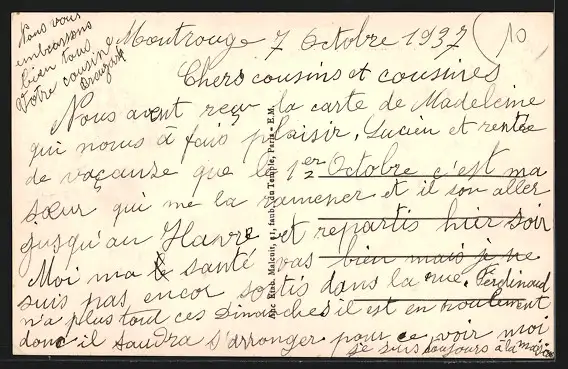 Montrouge 7 Octobre 1937
10
Chers cousins et cousines
Nous avont reçu la carte de Madeleine
qui nous à fais plaisir, Lucien et rentée
de vaçanse que le 1er Octobre c'est ma
sœur qui me la ramener et il son aller
jusqu'au Havre et repartis hier soir
Moi ma santé vas bien mais je ne
suis pas encor sortis dans la rue. Ferdinand
n'a plus tout ces Dimanches il est en roulement
donc il faudra s'arronger pour ce voir moi
je suis toujours à la maison
Nous vous
embrassons
bien tous
Votre cousine
Anc Etab. Malcuit, 41, faub. du Temple, Paris - E.M.